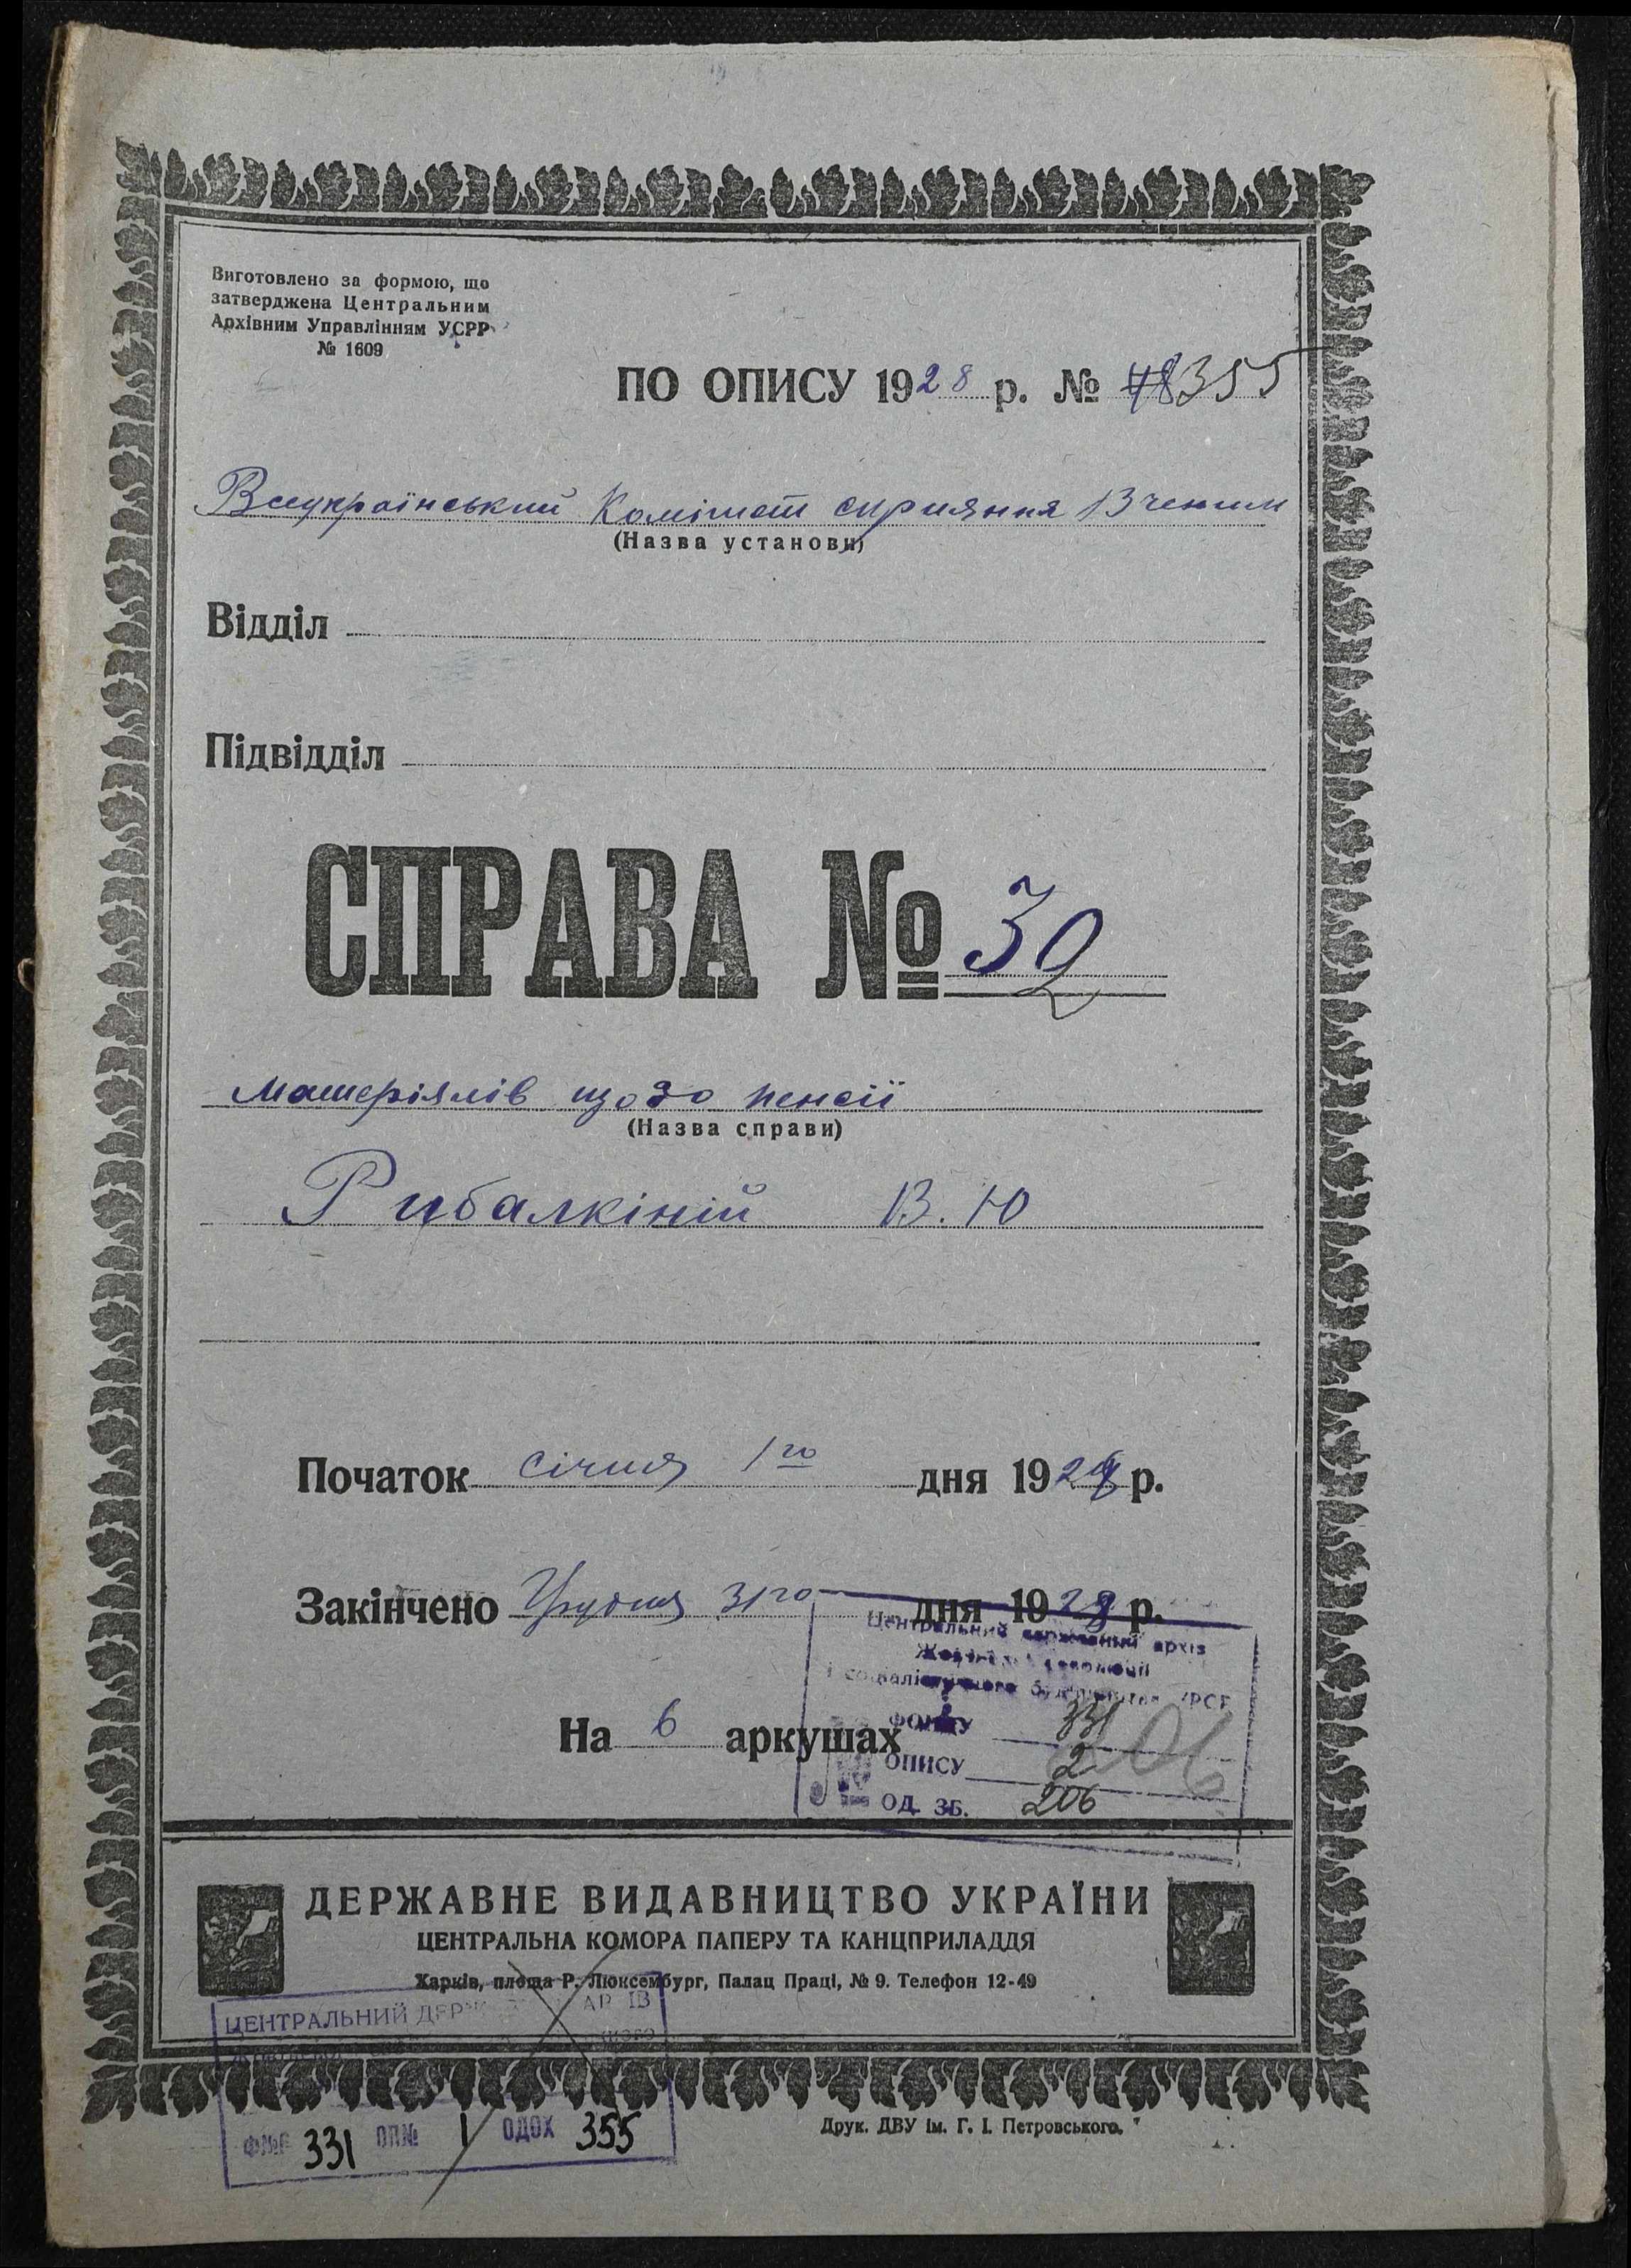 Виготовлено за формою, що
затверджена Центральним
Архівним Управлінням УСРР
№ 1609
ПО ОПИСУ 1928 р. № 48 355
Всеукраїнський Комітет сприяння Вченим
(Назва установи)
Відділ
Підвідділ
СПРАВА № 32
Матеріялів щодо пенсії
(Назва справи)
Рибалкіній В. Ю
Початок січня 1го дня 192 р.
Закінчено Грудня 31го дня 1928 р.
Центральний державний архів
Жовтневої революції
і соціалістичного будівництва УРСР
На 6 аркушах
ФОНДУ 331
ОПИСУ 2
ОД. ЗБ. 206
206
ДЕРЖАВНЕ ВИДАВНИЦТВО УКРАЇНИ
ЦЕНТРАЛЬНА КОМОРА ПАПЕРУ ТА КАНЦПРИЛАДДЯ
Харків, площа Р. Люксембург, Палац Праці, № 9. Телефон 12-49
ЦЕНТРАЛЬНИЙ ДЕРЖ АРХІВ
ФОНД 331 ОП№ 1 ОДОХ 355
Друк. ДВУ ім. Г. І. Петровського.